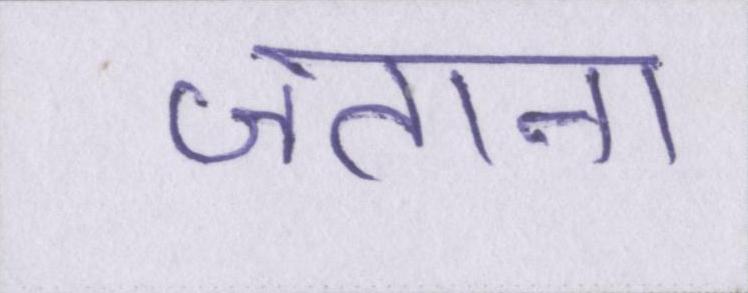 जताना